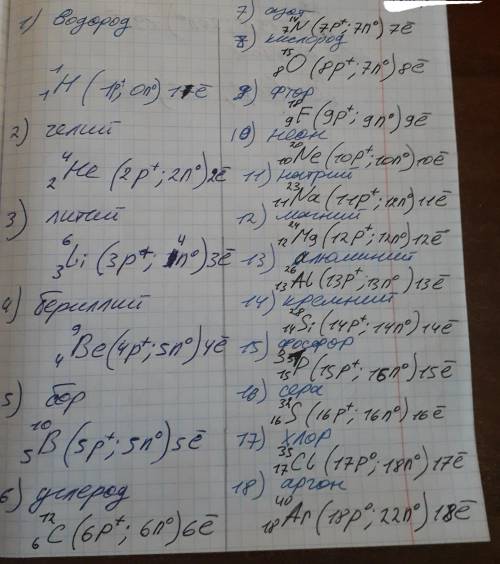 1) водород
¹₁H (1p⁺; 0n⁰) 1ē
2) гелий
⁴₂He (2p⁺; 2n⁰) 2ē
3) литий
⁶₃Li (3p⁺; 4n⁰) 3ē
4) бериллий
⁹₄Be (4p⁺; 5n⁰) 4ē
5) бор
¹⁰₅B (5p⁺; 5n⁰) 5ē
6) углерод
¹²₆C (6p⁺; 6n⁰) 6ē
7) азот
¹⁴₇N (7p⁺; 7n⁰) 7ē
8) кислород
¹⁵₈O (8p⁺; 7n⁰) 8ē
9) фтор
¹⁸₉F (9p⁺; 9n⁰) 9ē
10) неон
²⁰₁₀Ne (10p⁺; 10n⁰) 10ē
11) натрий
²³₁₁Na (11p⁺; 12n⁰) 11ē
12) магний
²⁴₁₂Mg (12p⁺; 12n⁰) 12ē
13) алюминий
²⁶₁₃Al (13p⁺; 13n⁰) 13ē
14) кремний
²⁸₁₄Si (14p⁺; 14n⁰) 14ē
15) фосфор
₁₅P (15p⁺; 16n⁰) 15ē
16) сера
³²₁₆S (16p⁺; 16n⁰) 16ē
17) хлор
³⁵₁₇Cl (17p⁰; 18n⁰) 17ē
18) аргон
⁴⁰₁₈Ar (18p⁰; 22n⁰) 18ē